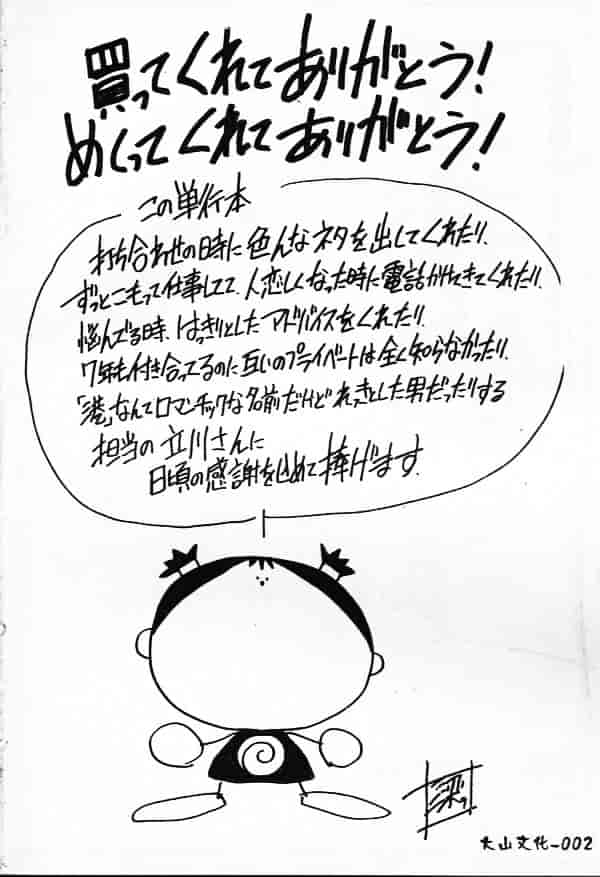 買ってくれてありがとう!
めくってくれてありがとう!
この単行本
打ち合わせの時に色んなネタを出してくれたり、
ずっとこもって仕事してて、人恋しくなった時に電話かけてきてくれたり、
悩んでる時、はっきりとしたアドバイスをくれたり、
7年も付き合ってるのに互いのプライベートは全く知らなかったり、
「渚」なんてロマンチックな名前だけどれっきとした男だったりする
担当の立川さんに
日頃の感謝を込めて捧げます。
大山文化-002